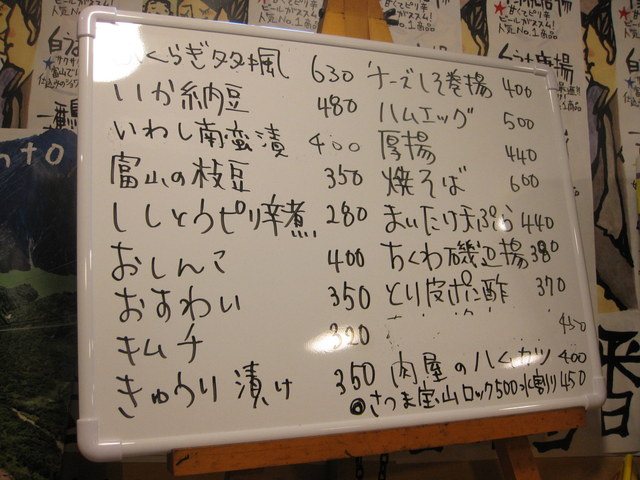 くらぎタタキ風 630
いか納豆 480
いわし南蛮漬 400
富山の枝豆 350
ししとうピリ辛煮 280
おしんこ 400
おすわい 350
キムチ 320
きゅうり漬け 350
チーズしそ巻揚 400
ハムエッグ 500
厚揚 440
焼そば 600
まいたけ天ぷら 440
ちくわ磯辺揚 380
とり皮ポン酢 370
450
肉屋のハムカツ 400
◎さつま宝山ロック500水割り450
nto
番